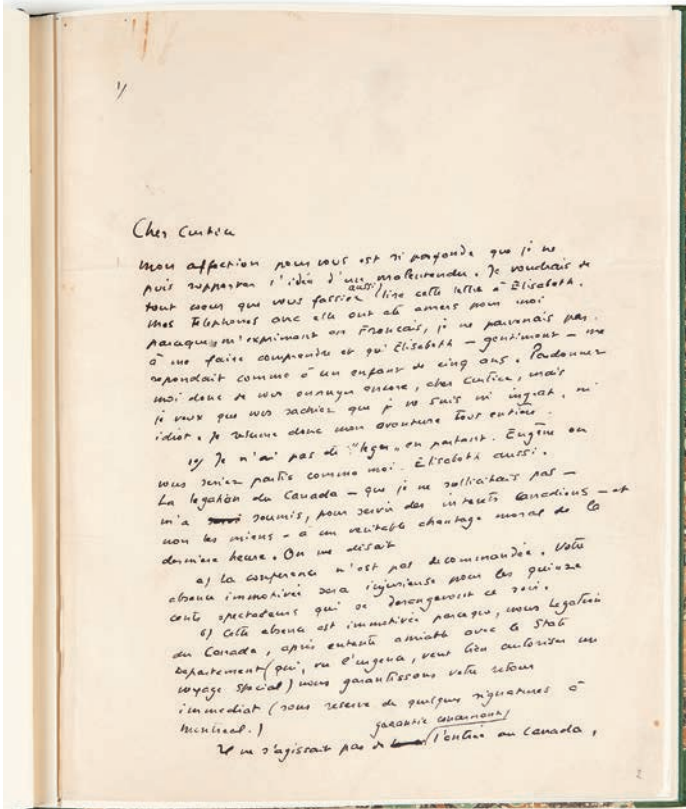 1/
Cher Curtice
Mon affection pour vous est si profonde que je ne
puis supporter l'idée d'un malentendu. Je voudrais de
aussi
tout coeur que vous fassiez lire cette lettre à Elisabeth.
Mes telephones avec elle ont été amers pour moi
parceque, m'exprimant en Français, je ne parvenais pas
à me faire comprendre et qu'Elisabeth – gentiment – me
repondait comme à un enfant de cinq ans. Pardonnez
moi donc de vous ennuyer encore, cher Curtice, mais
je veux que vous sachiez que je ne suis ni ingrat, ni
idiot. Je résume donc mon aventure tous entière.
1°/ Je n'ai pas été "leger" en partant. Eugène ou
vous seriez partis comme moi. Elisabeth aussi.
La legation du Canada – que je ne sollicitais pas –
m'a soumis, pour servir des interets Canadiens – et
non les miens – à un veritable chantage moral de la
dernière heure. On me disait
a) la conference n'est pas decommandée. Votre
absence immotivée sera injurieuse pour les quinze
cents spectateurs qui se derangeront ce soir.
b) Cette absence est immotivée parceque, nous Legation
du Canada, après entente amiable avec le State
Departement (qui, vu l'urgence, veut bien autoriser un
voyage special) nous garantissons votre retour
immediat (sous reserve de quelques signatures à
Montreal.)
garantie
Il ne s'agissait pas de l'entrée au Canada,
2